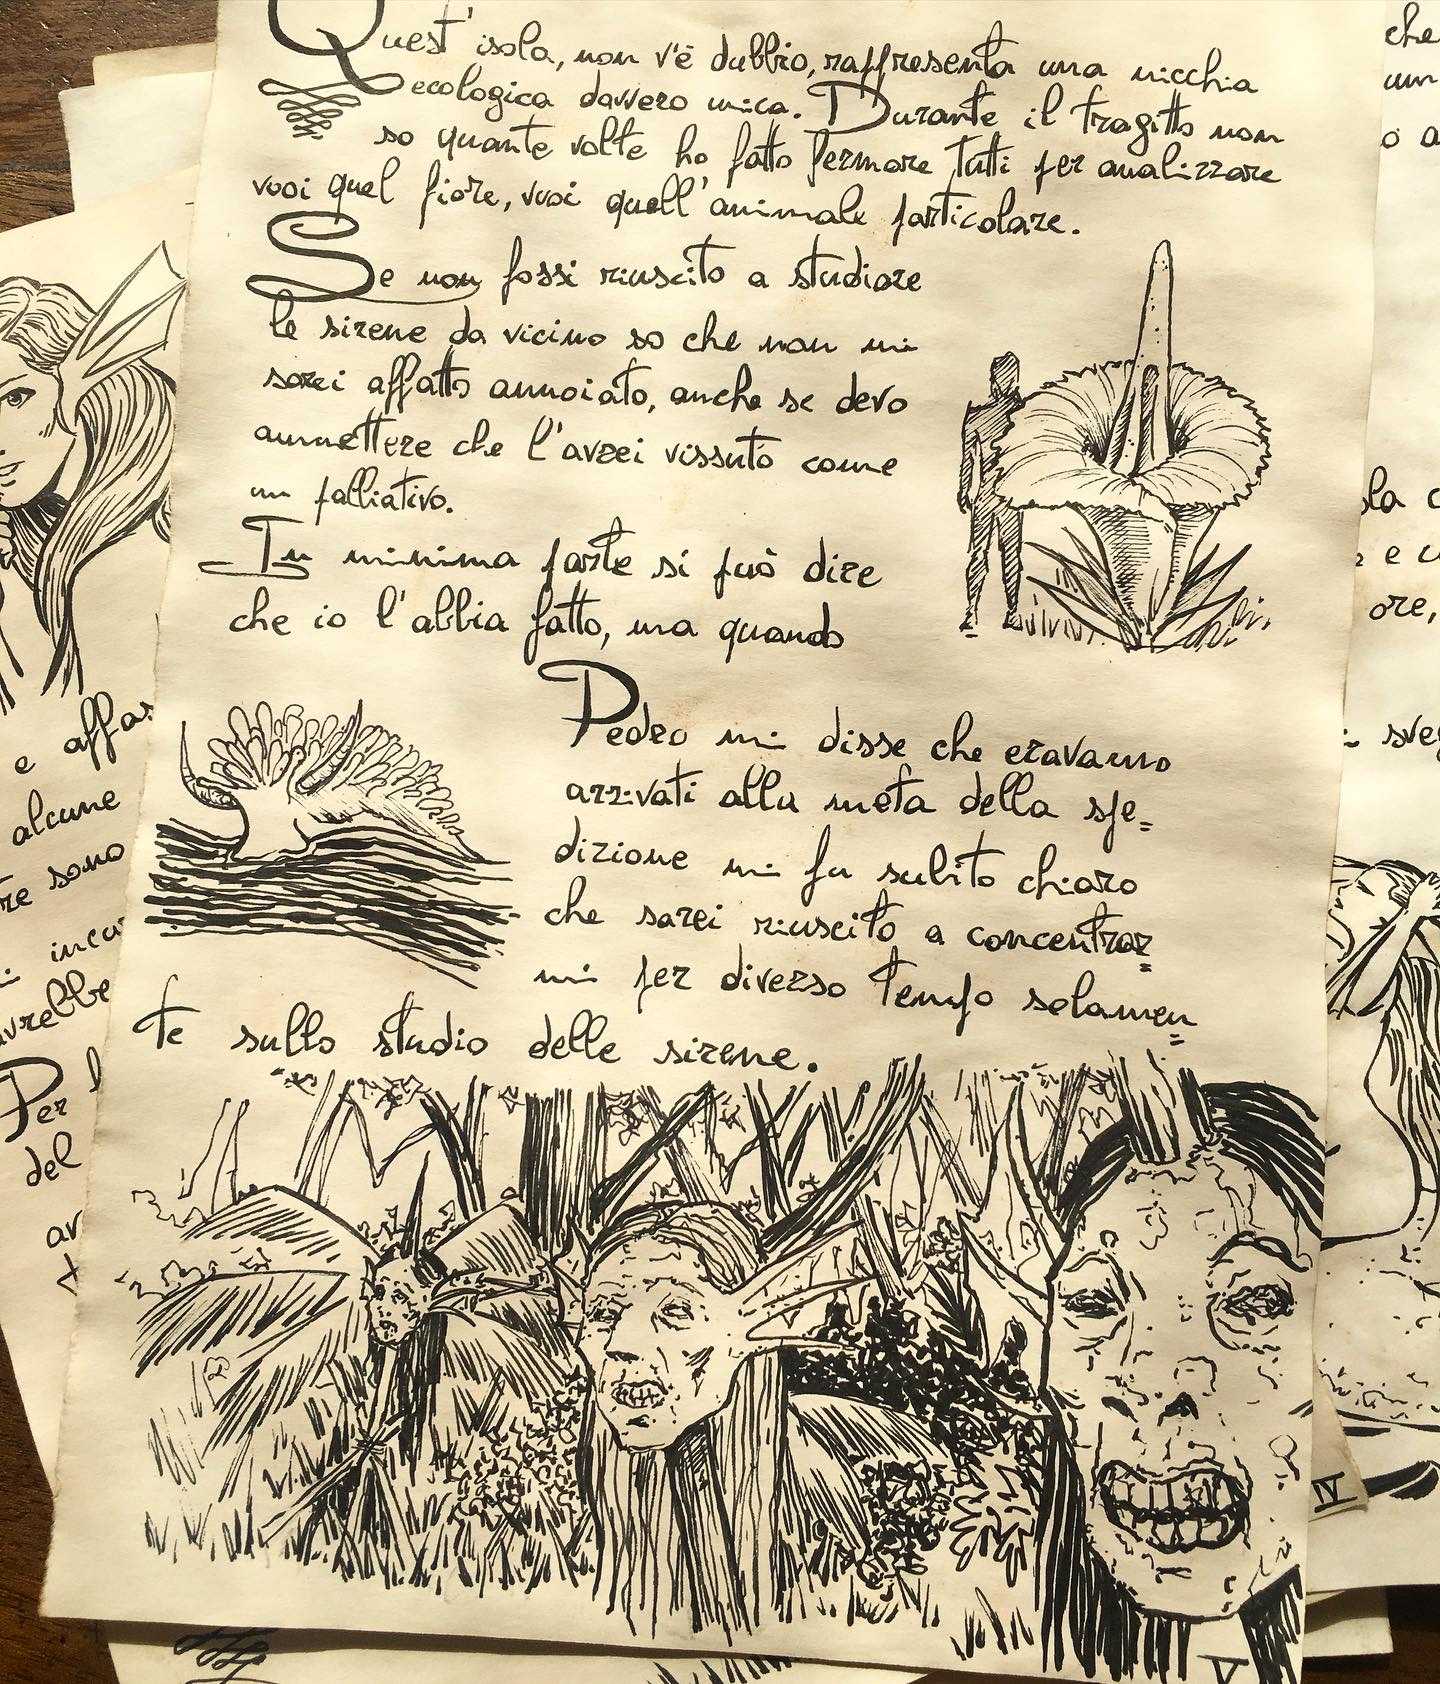 Quest'isola, non v'è dubbio, rappresenta una nicchia
ecologica davvero unica. Durante il tragitto non
so quante volte ho fatto fermare tutti per analizzare
vuoi quel fiore, vuoi quell'animale particolare.
Se non fossi riuscito a studiare
le sirene da vicino so che non mi
sarei affatto annoiato, anche se devo
ammettere che l'avrei vissuto come
un palliativo.
In minima parte si può dire
che io l'abbia fatto, ma quando
Pedro mi disse che eravamo
arrivati alla meta della spe=
dizione mi fu subito chiaro
che sarei riuscito a concentrar=
mi per diverso tempo solamen=
te sullo studio delle sirene.
V
e affas
alcune
re sono
incu
vrebbe
Per l
del
av
che
un
o a
ola c
e c
ore,
sveg
IV